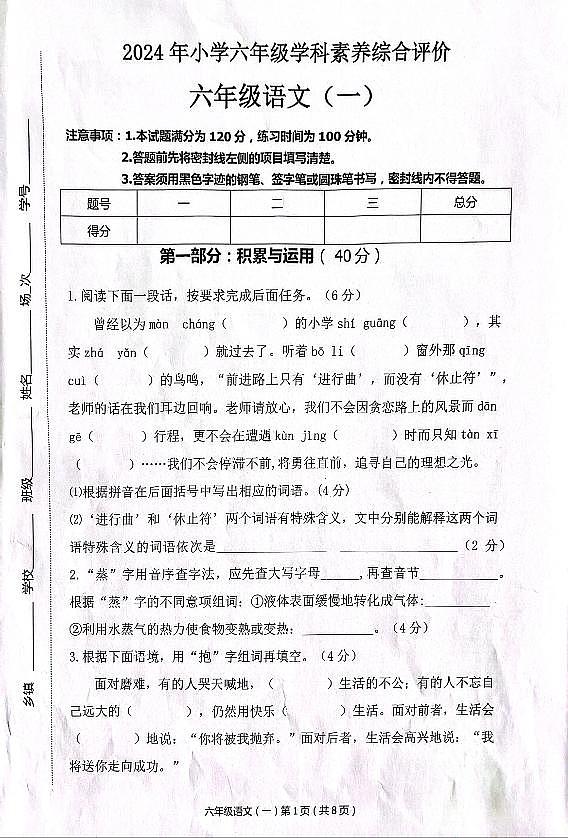 2024 年小学六年级学科素养综合评价
六年级语文（一）
注意事项：1.本试题满分为 120 分，练习时间为 100 分钟。
2.答题前先将密封线左侧的项目填写清楚。
3.答案须用黑色字迹的钢笔、签字笔或圆珠笔书写，密封线内不得答题。
题号 一 二 三 总分
得分
第一部分：积累与运用（ 40 分）
1.阅读下面一段话，按要求完成后面任务。（6 分）
曾经以为màn cháng（ ）的小学shí guāng（ ），其
实zhá yǎn（ ）就过去了。听着bō li（ ）窗外那qīng
cuì（ ）的鸟鸣，“前进路上只有‘进行曲’，而没有‘休止符’”，
老师的话在我们耳边回响。老师请放心，我们不会因贪恋路上的风景而dān
gē（ ）行程，更不会在遭遇kùn jìng（ ）时而只知tàn xī
（ ）……我们不会停滞不前,将勇往直前，追寻自己的理想之光。
⑴根据拼音在后面括号中写出相应的词语。(4 分)
⑵‘进行曲’和‘休止符’两个词语有特殊含义，文中分别能解释这两个词
语特殊含义的词语依次是____________ ____________（2 分）
2.“蒸”字用音序查字法，应先查大写字母_____,再查音节__________。
根据“蒸”字的不同意项组词：①液体表面缓慢地转化成气体:________
②利用水蒸气的热力使食物变熟或变热：_________。（4 分）
3.根据下面语境，用“抱”字组词再填空。（4 分）
面对磨难，有的人哭天喊地，（ ）生活的不公；有的人不忘自
己远大的（ ），仍然用快乐（ ）生活。面对前者，生活会
（ ）地说：“你将被我抛弃。”面对后者，生活会高兴地说：“我
将送你走向成功。”
六年级语文（一）第 1 页（共 8 页）
乡镇 学校 班级 姓名 场次 学号